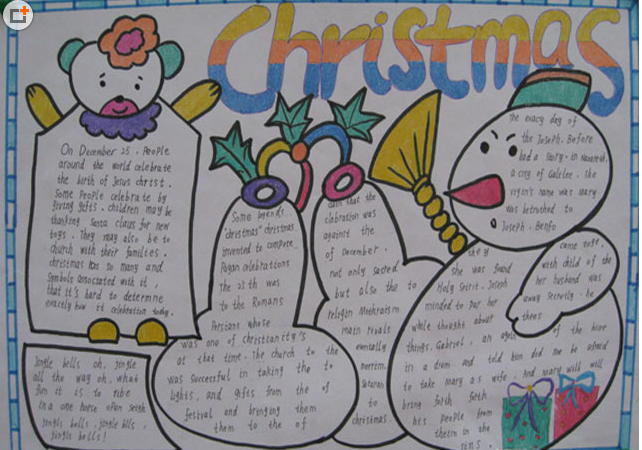 Christmas
On December 25. People
around the world celebrate
the birth of Jesus christ.
Some People celebrate by
giving gifts. children may be
thanking Santa claus for new
toys. They may also be to
church with their families.
christmas has so many and
symbols associated with it,
that it's hard to determine
exactly how it celebration today.
Jingle bells oh, jingle
all the way oh, what
fun it is to ride
in a one horse open seigh
jingle bells, jingle bells,
jingle bells!
Some legends
"christmas" christmas
invented to compete
Pagan celebrations
The 25th was
to the Romans
Persians whose
was one of christianity's
at that time. The church to the
was Successful in taking the to
lights, and gifts from the of
festival and bringing them
them to the of
claim that the
clebration was
against the
of December.
not only sacred
but also the to
religion Mithraism
main rivals
eventually
merrim.
Sataran
to
christmas.
the exacy day of
the Joseph. Before
had a story. in Nazareth,
a city of Galelee. She
virgin's name was Mary
was betrothed to
Joseph. Befo
came toge.
they
with child of the
she was found
her husband was
Holy Spirit. Joseph
away Secretly. he
minded to put her
these
while thought about
of the
things, Gabriel, an
in a dram and told him did me be afraid
to take mary as wife. And mary will will
bring forth forth
his people from
them in the
sins.